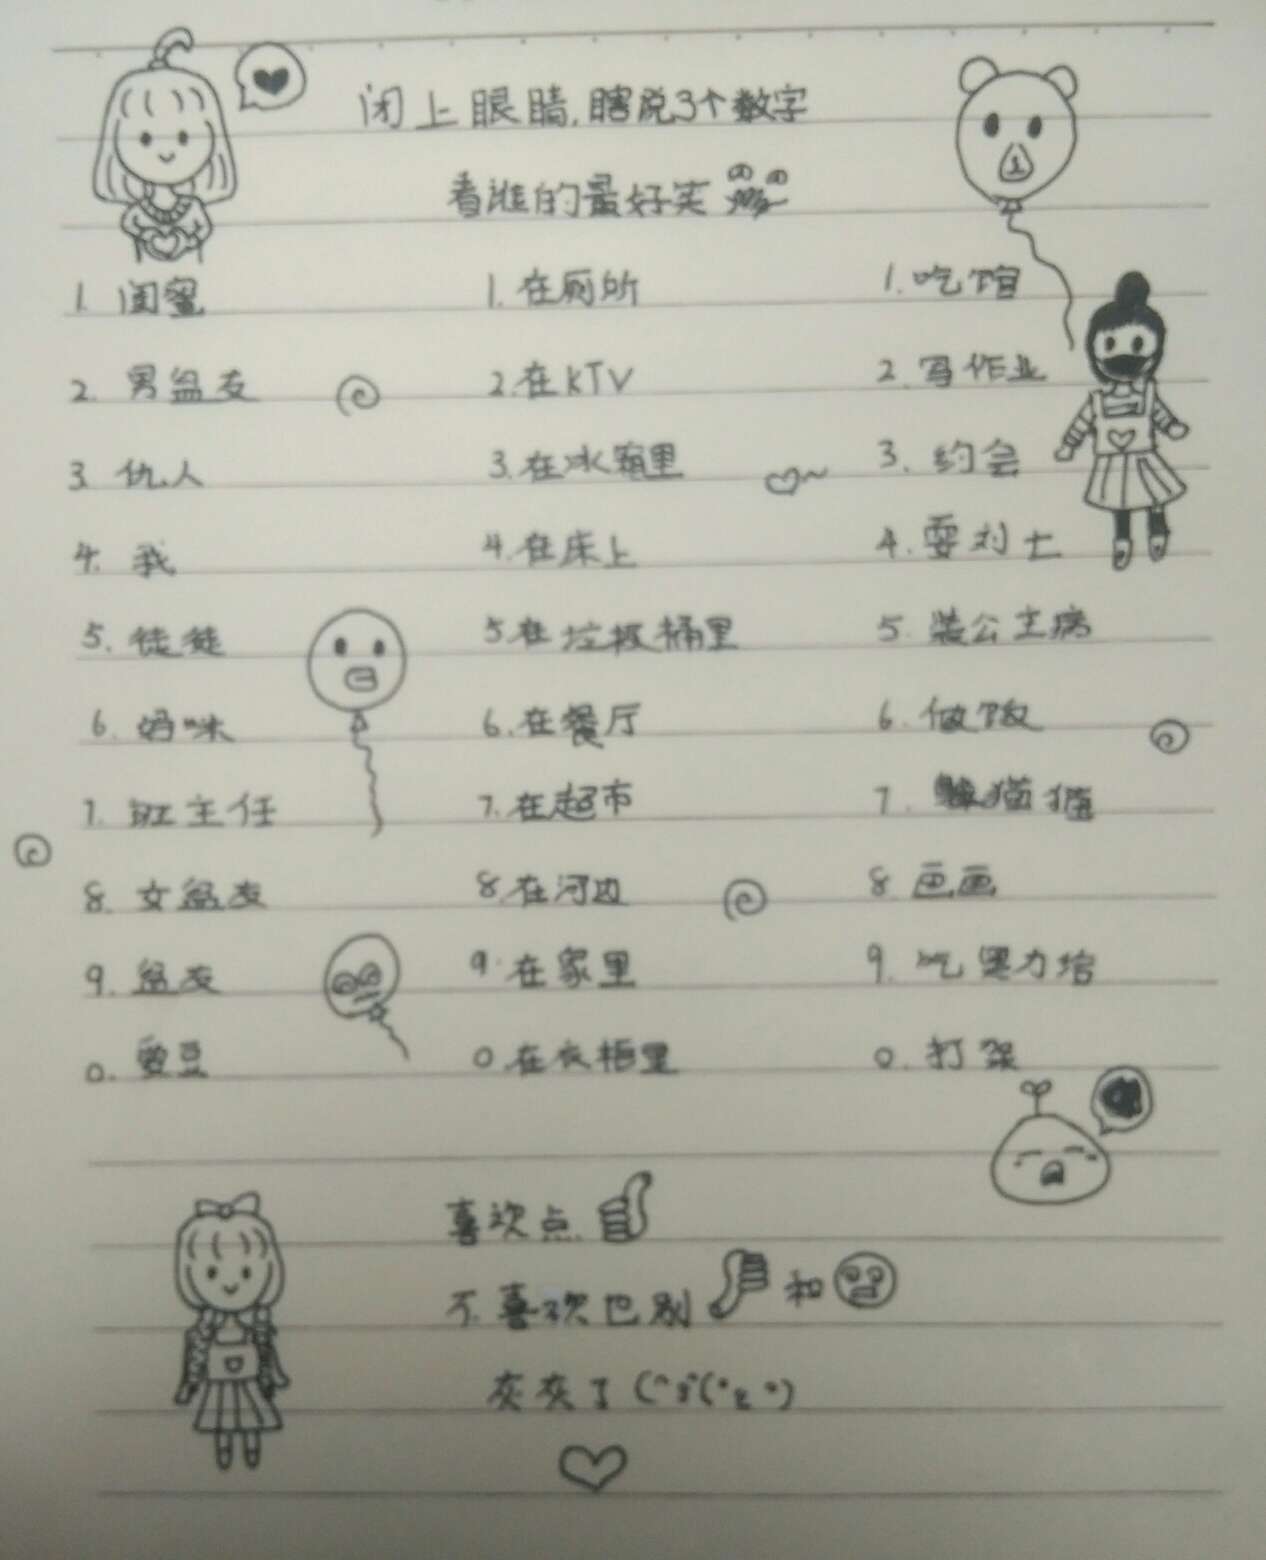 闭上眼睛,瞎说3个数字
看谁的最好笑
1. 闺蜜 1. 在厕所 1. 吃馆
2. 男盆友 2. 在KTV 2. 写作业
3. 仇人 3. 在冰箱里 3. 约会
4. 我 4. 在床上 4. 耍刘士
5. 徒徒 5. 在垃圾桶里 5. 装公主病
6. 妈咪 6. 在餐厅 6. 做饭
7. 班主任 7. 在超市 7. 猫
8. 女盆友 8. 在河边 8. 画画
9. 盆友 9. 在家里 9. 吃黑力给
0. 爱豆 0. 在衣柜里 0. 打架
喜欢点
不喜欢也别 和
灰灰了